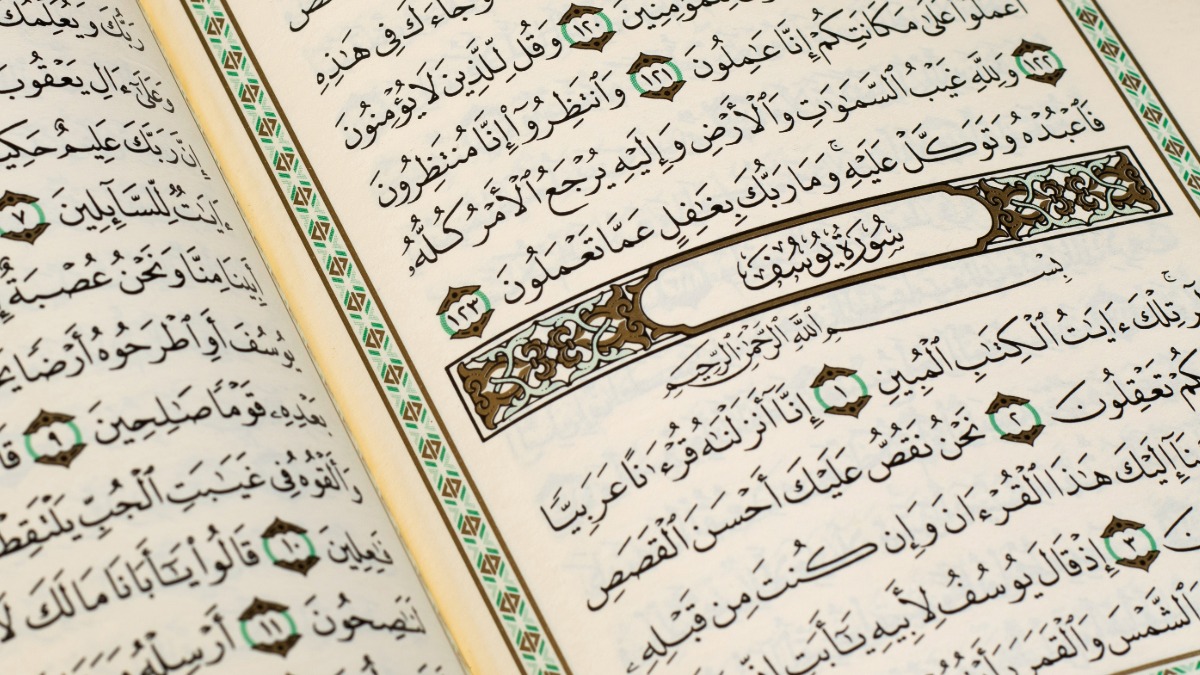 وَجَآءَكَ فِى هَٰذِهِ
وَقُل لِّلَّذِينَ لَا يُؤْمِنُونَ ١٢٠
ٱعْمَلُوا۟ عَلَىٰ مَكَانَتِكُمْ إِنَّا عَٰمِلُونَ ١٢١ وَٱنتَظِرُوٓا۟ إِنَّا مُنتَظِرُونَ
١٢٢ وَلِلَّهِ غَيْبُ ٱلسَّمَٰوَٰتِ وَٱلْأَرْضِ وَإِلَيْهِ يُرْجَعُ ٱلْأَمْرُ كُلُّهُۥ
فَٱعْبُدْهُ وَتَوَكَّلْ عَلَيْهِ ۚ وَمَا رَبُّكَ بِغَٰفِلٍ عَمَّا تَعْمَلُونَ ١٢٣
سُورَةُ يُوسُفَ
بِسْمِ ٱللَّهِ ٱلرَّحْمَٰنِ ٱلرَّحِيمِ
تِلْكَ ءَايَٰتُ ٱلْكِتَٰبِ ٱلْمُبِينِ ١ إِنَّآ أَنزَلْنَٰهُ قُرْءَٰنًا عَرَبِيًّا
تَعْقِلُونَ ٢ نَحْنُ نَقُصُّ عَلَيْكَ أَحْسَنَ ٱلْقَصَصِ
إِلَيْكَ هَٰذَا ٱلْقُرْءَانَ وَإِن كُنتَ مِن قَبْلِهِۦ
٣ إِذْ قَالَ يُوسُفُ لِأَبِيهِ يَٰٓأَبَتِ
ٱلشَّمْسَ وَٱلْقَمَرَ
رَبُّكَ وَيُعَلِّمُكَ
وَعَلَىٰٓ ءَالِ يَعْقُوبَ
إِنَّ رَبَّكَ عَلِيمٌ
ءَايَٰتٌ لِّلسَّآئِلِينَ ٧
أَبِينَا مِنَّا وَنَحْنُ عُصْبَةٌ
يُوسُفَ أَوِ ٱطْرَحُوهُ أَرْضًا
بَعْدِهِۦ قَوْمًا صَٰلِحِينَ ٩
وَأَلْقُوهُ فِى غَيَٰبَتِ ٱلْجُبِّ
فَٰعِلِينَ ١٠ قَالُوا۟ يَٰٓأَبَانَا مَا لَكَ
لَنَٰصِحُونَ ١١ أَرْسِلْهُ